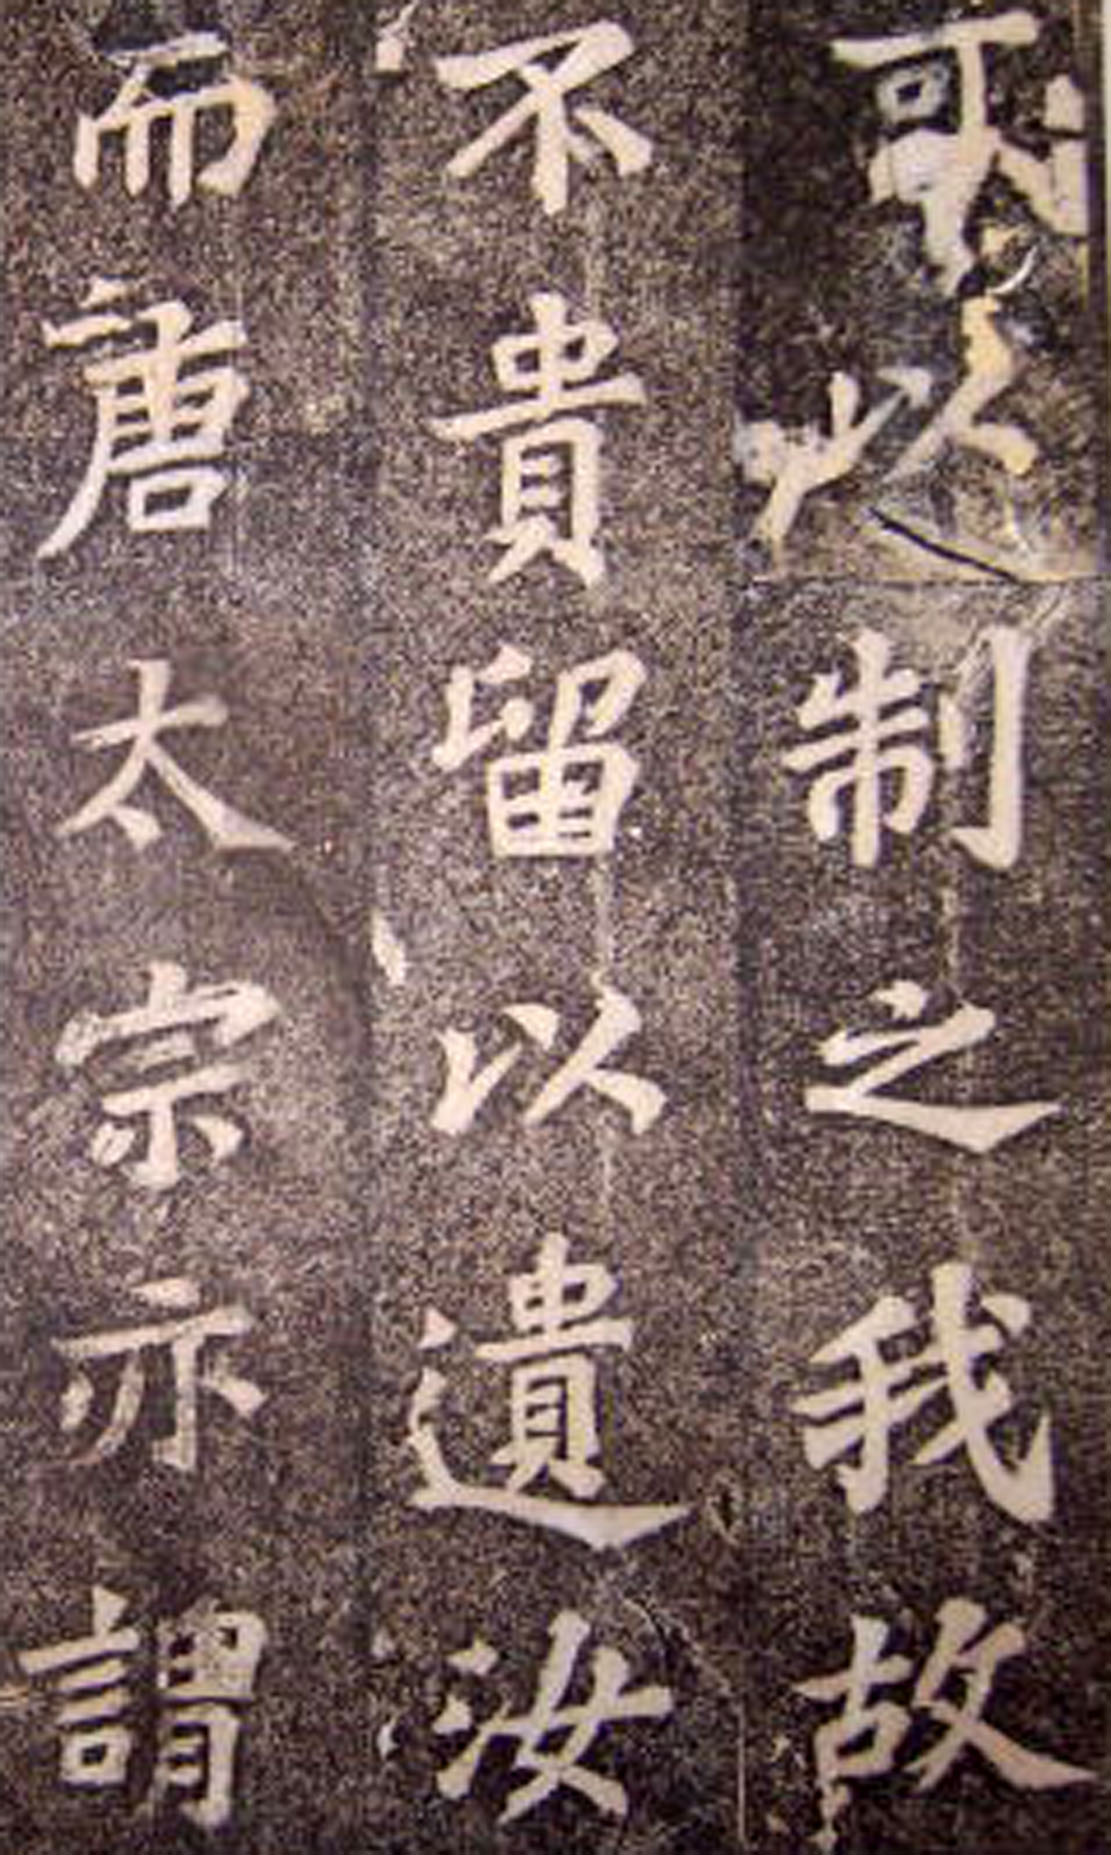 可以制之我故
不貴留以遺汝
而唐太宗亦謂